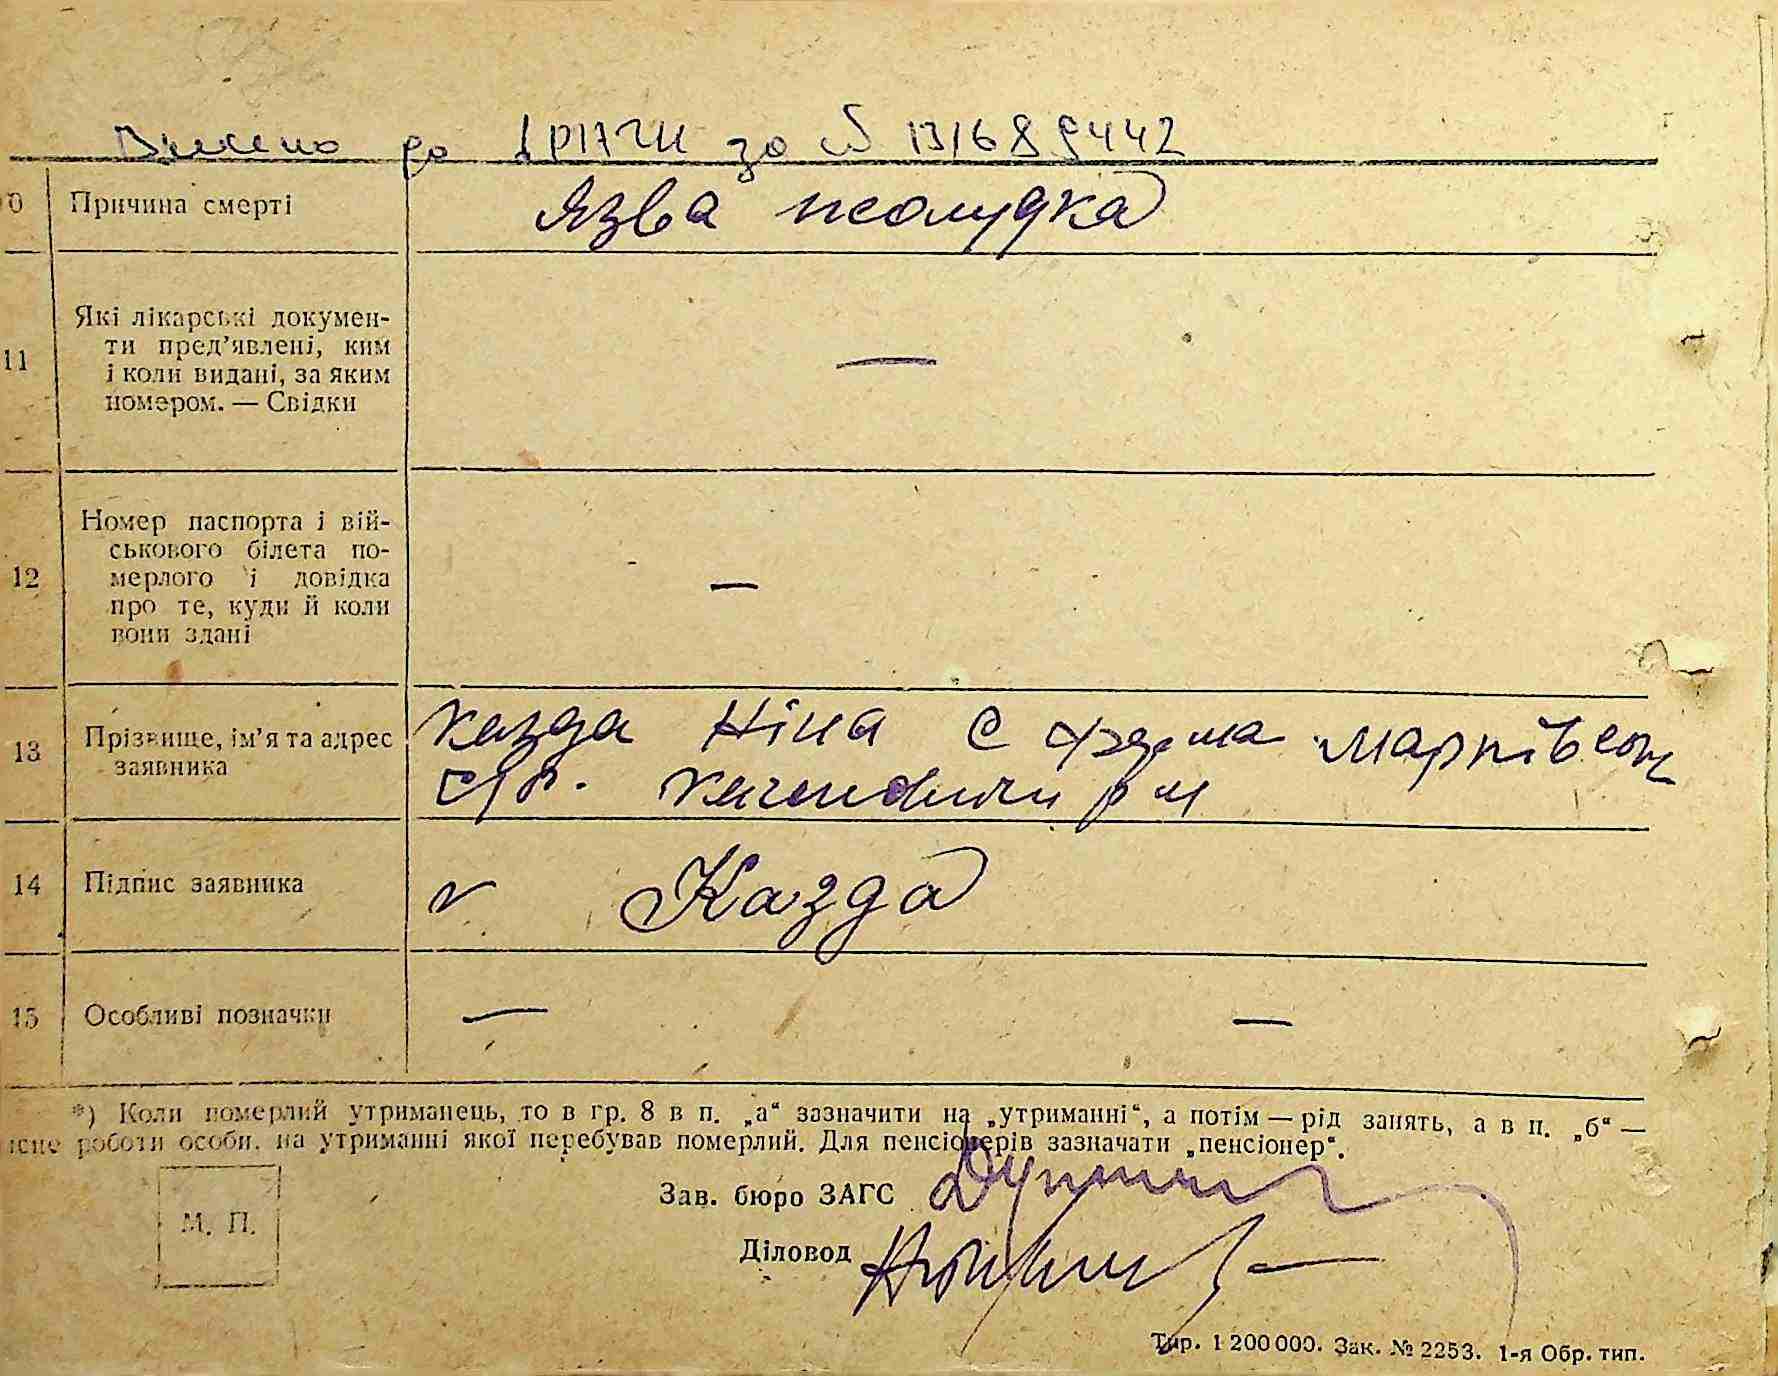 Внесено до ДРАЦГ за № 131689442
10 Причина смерті Язва желудка
11 Які лікарські докумен-
ти пред'явлені, ким
і коли видані, за яким
номером. — Свідки —
12 Номер паспорта і вій-
ськового білета по-
мерлого і довідка
про те, куди й коли
вони здані —
13 Прізвище, ім'я та адрес
заявника
Казда Ніна с
14 Підпис заявника Казда
15 Особливі позначки — —
*) Коли померлий утриманець, то в гр. 8 в п. „а“ зазначити на „утриманні“, а потім — рід занять, а в п. „б“ —
місце роботи особи, на утриманні якої перебував померлий. Для пенсіонерів зазначати „пенсіонер“.
М. П.
Зав. бюро ЗАГС
Діловод
Тир. 1 200 000. Зак. № 2253. 1-я Обр. тип.